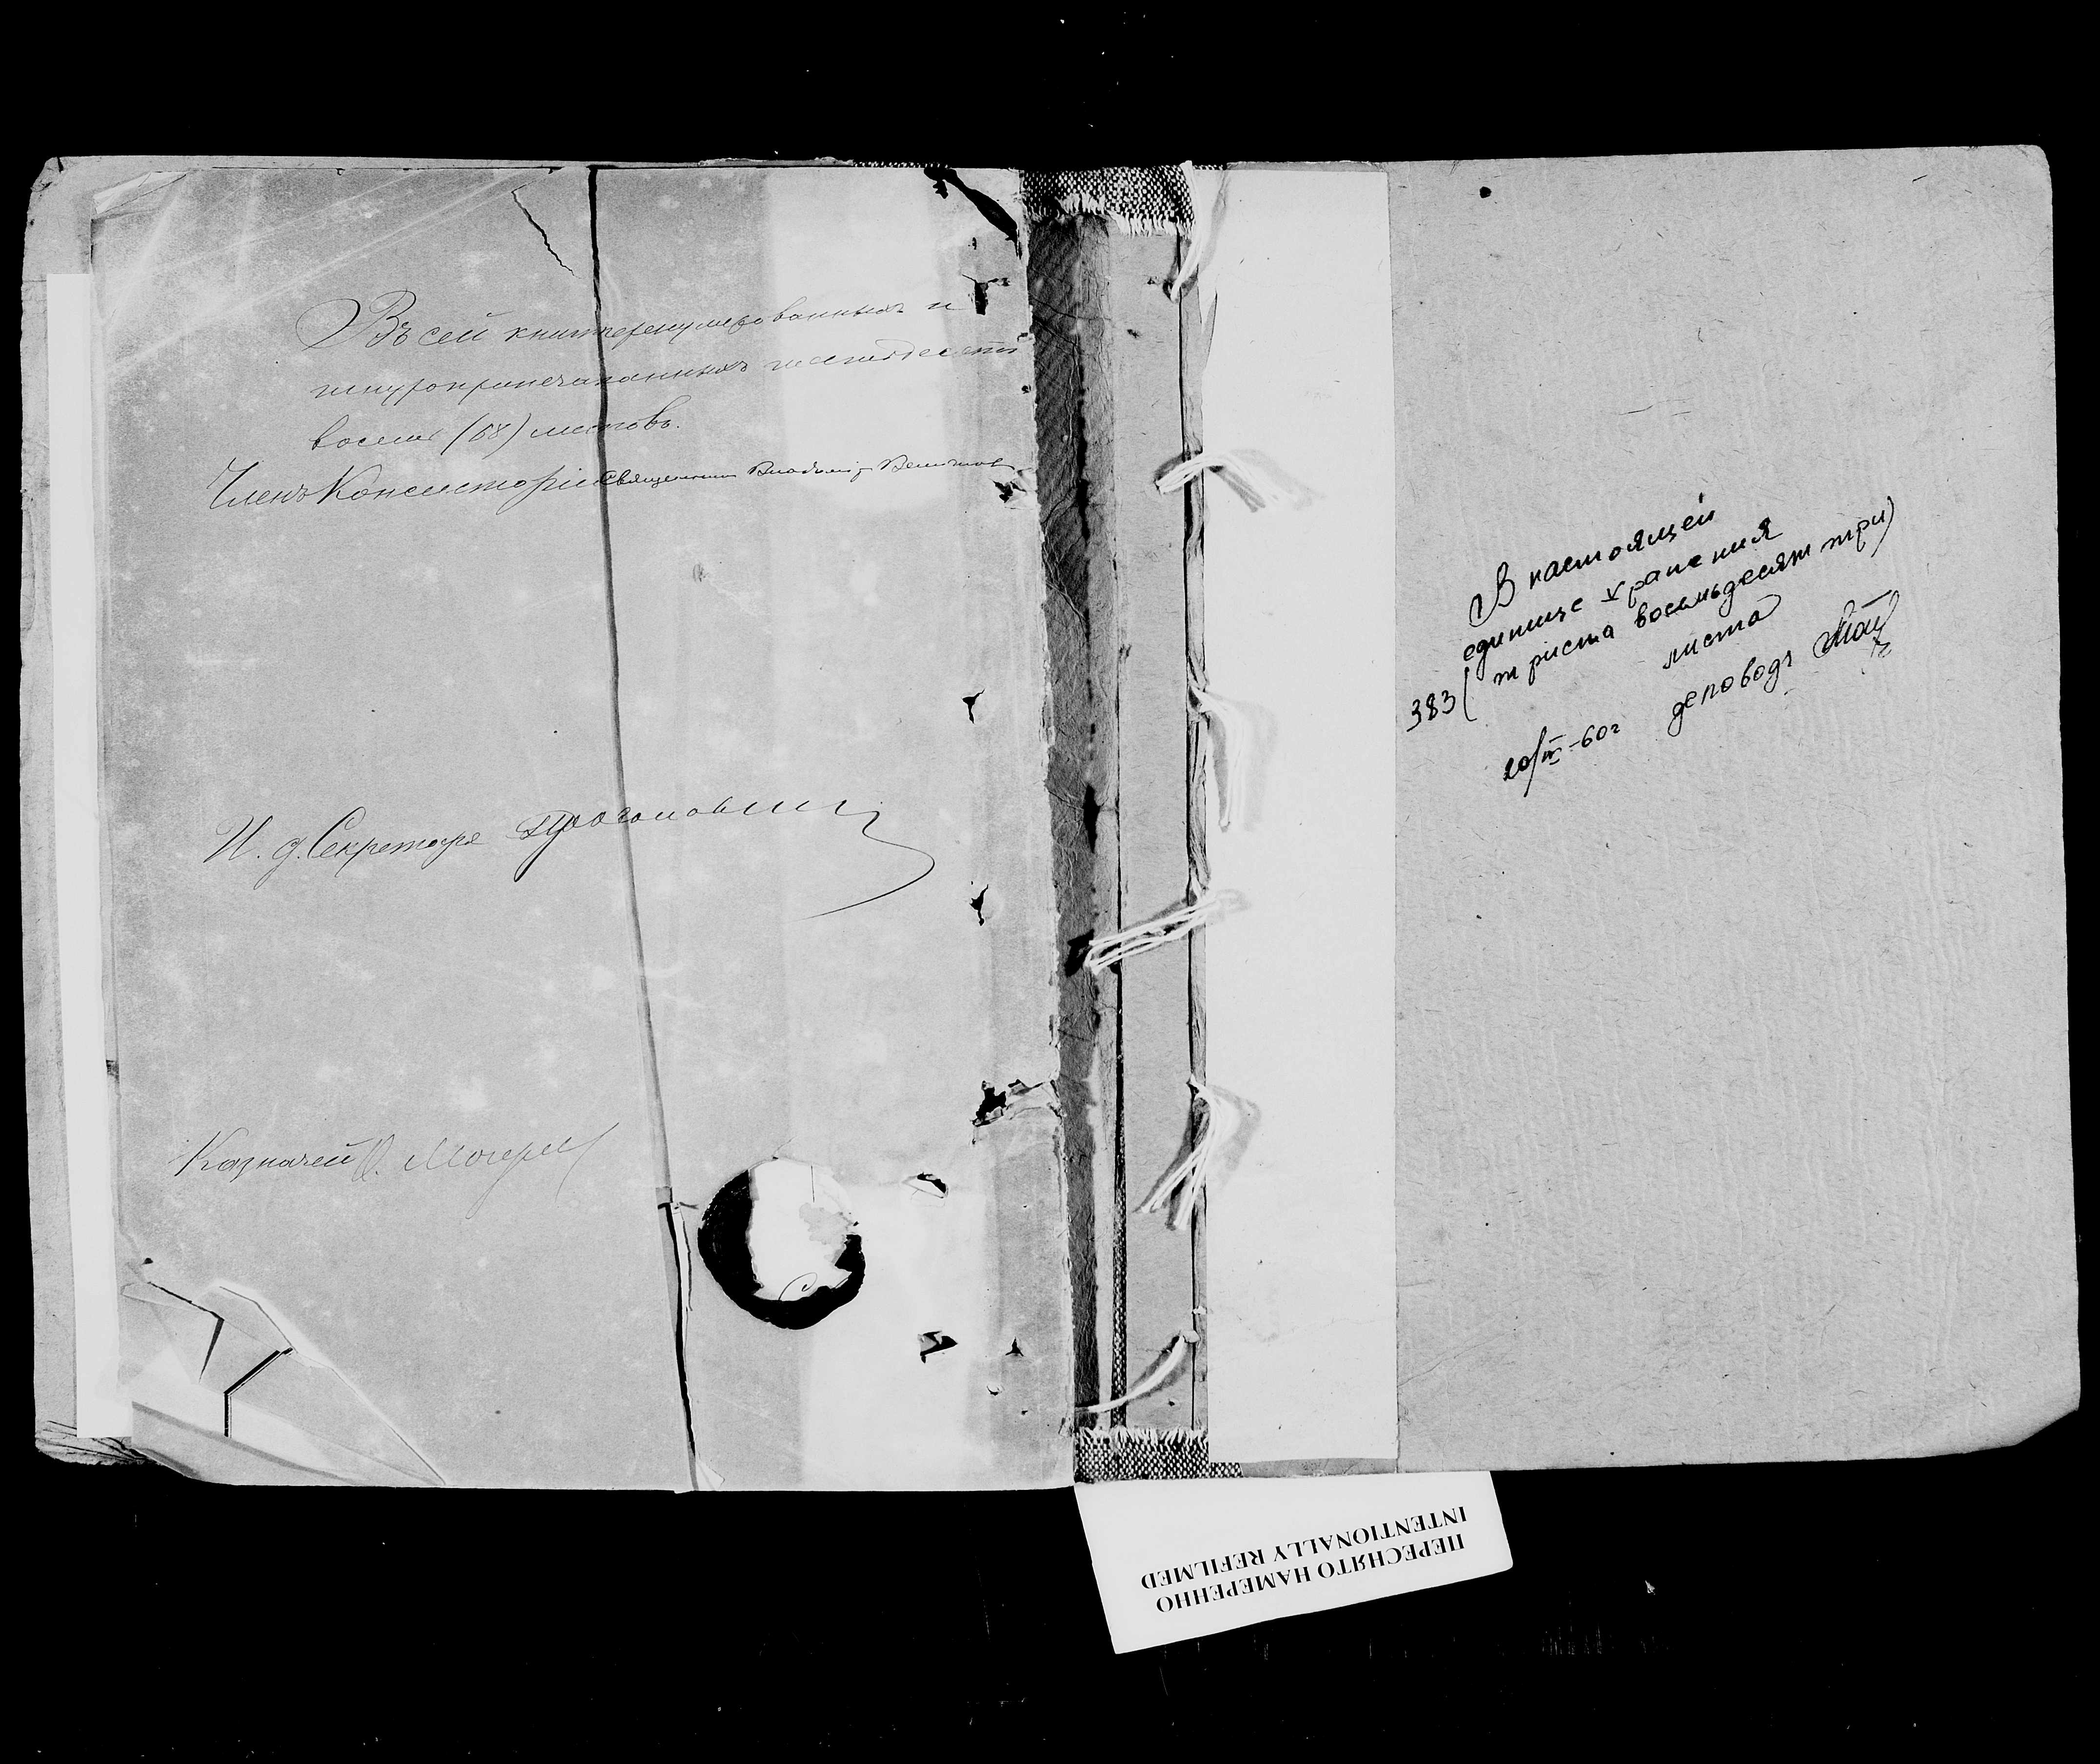 Въ сей книге перенумерованныхъ и
шнуроприпечатанныхъ шестьдесятъ
восемь (68) листовъ.
Членъ Консисторіи Священникъ Владиміръ
И. д. Секретаря
Казначей
В настоящей
единице хранения
383 (триста восемьдесят три)
листа
20/IV-60г деловодъ
ПЕРЕСНЯТО НАМЕРЕННО
INTENTIONALLY REFILMED